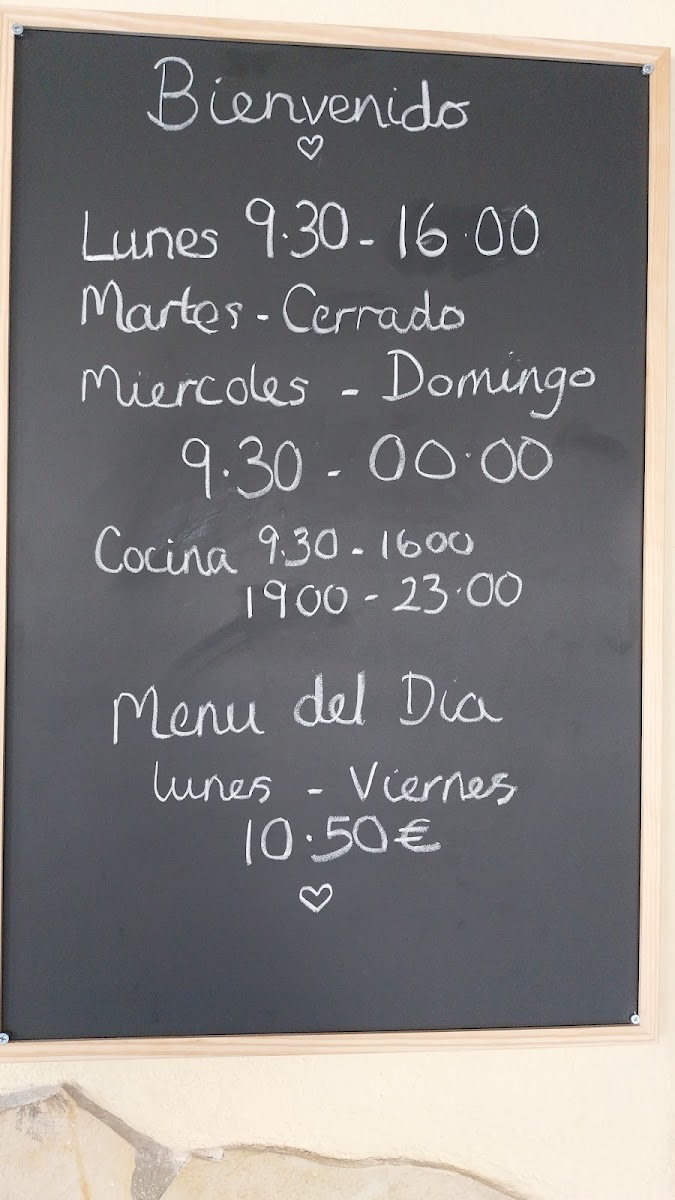 Bienvenido
♡
Lunes 9.30 - 16.00
Martes - Cerrado
Miercoles - Domingo
9.30 - 00.00
Cocina 9.30 - 1600
1900 - 23.00
Menu del Dia
Lunes - Viernes
10.50€
♡